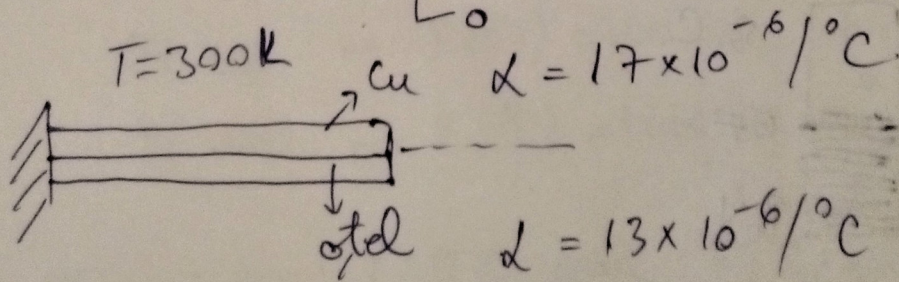 L₀
T=300K
Cu
α = 17×10⁻⁶/°C
oțel
α = 13×10⁻⁶/°C